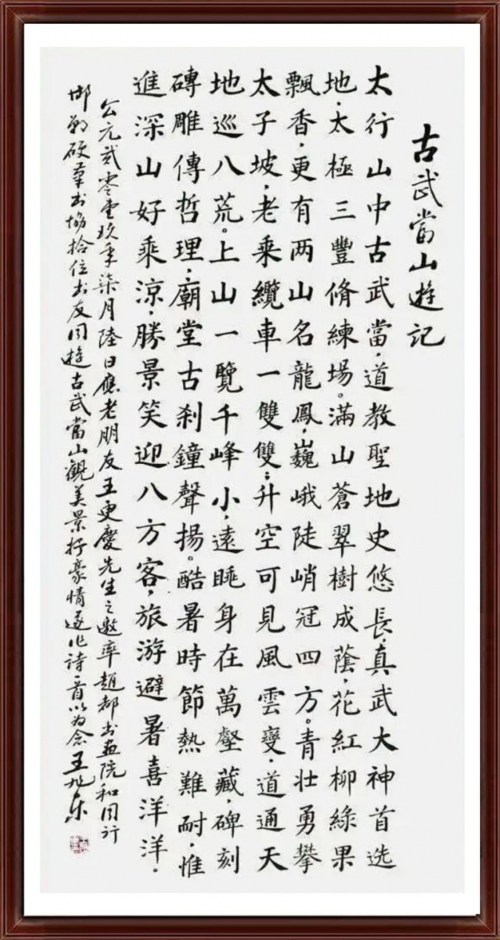 古武當山遊記
太行山中古武當,道教聖地史悠長,真武大神首选
地,太極三豐脩練場。滿山蒼翠樹成蔭,花紅柳綠果
飄香,更有两山名龍鳳,巍峨陡峭冠四方。青壮勇攀
太子坡,老乘纜車一雙雙;升空可見風雲變,道通天
地巡八荒。上山一覽千峰小,遠睡身在萬壑藏,碑刻
磚雕傳哲理,廟堂古刹鐘聲揚。酷暑時節熱難耐,惟
進深山好乘涼,勝景笑迎八方客,旅游避暑喜洋洋.
公元贰零壹玖年柒月陸日應老朋友王更慶先生之邀率趙都书画院和同行
邯鄲硬筆书協拾位书友同遊古武當山觀美景抒豪情遂作詩一首以为念王